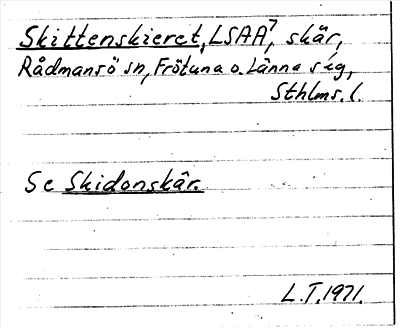 Skittenskieret, LSAA7, skär,
Rådmansö sn, Frötuna o. Länna slg,
Sthlms. l.
Se Skidonskär.
L.T. 1971.